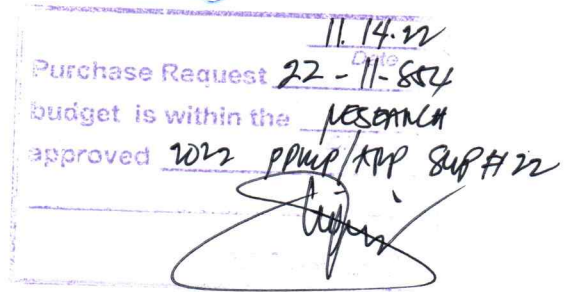 11.14.22
Date
Purchase Request 22-11-854
budget is within the RESEARCH
approved 2022 PPMP/APP SUP# 22